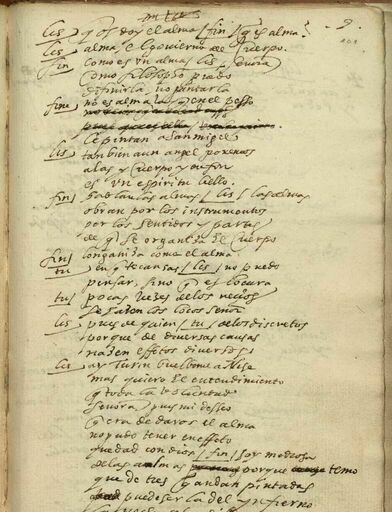 lis q̃ os doy el alma / fin / q̃ es alma
lis alma es el govierno del Cuerpo.
fin como es un alma lis señora
como filosofo puedo
difinirla, no pintarla
fin no es alma la q̃ en el pesso
le pintan a san miguel
lis tambien a un angel ponemos
alas y Cuerpo y en fin
es un espiritu bello.
fin hablan las almas / lis / las almas
obran por los instrumentos
por los sentidos y partes
de q̃ se organiza el Cuerpo
fin longaniza come el alma
tu en q̃ te cansas / lis / no puedo
pensar, sino q̃ es locura
tu pocas vezes de los necios
se salen los locos señor
lis pues de quien / tu / de los discretos
porque de diversas causas
nazen effetos diversos
lis ay Turin buelbome a Nise
mas quiero el entendimiento
q̃ toda la voluntad
señora pues mi desseo
q̃ era de daros el alma
no pudo tener en effeto
quedad con dios / fin / soy medrosa
de las almas porque temo
que de tres q̃ andan pintadas
puede ser la del ynfierno